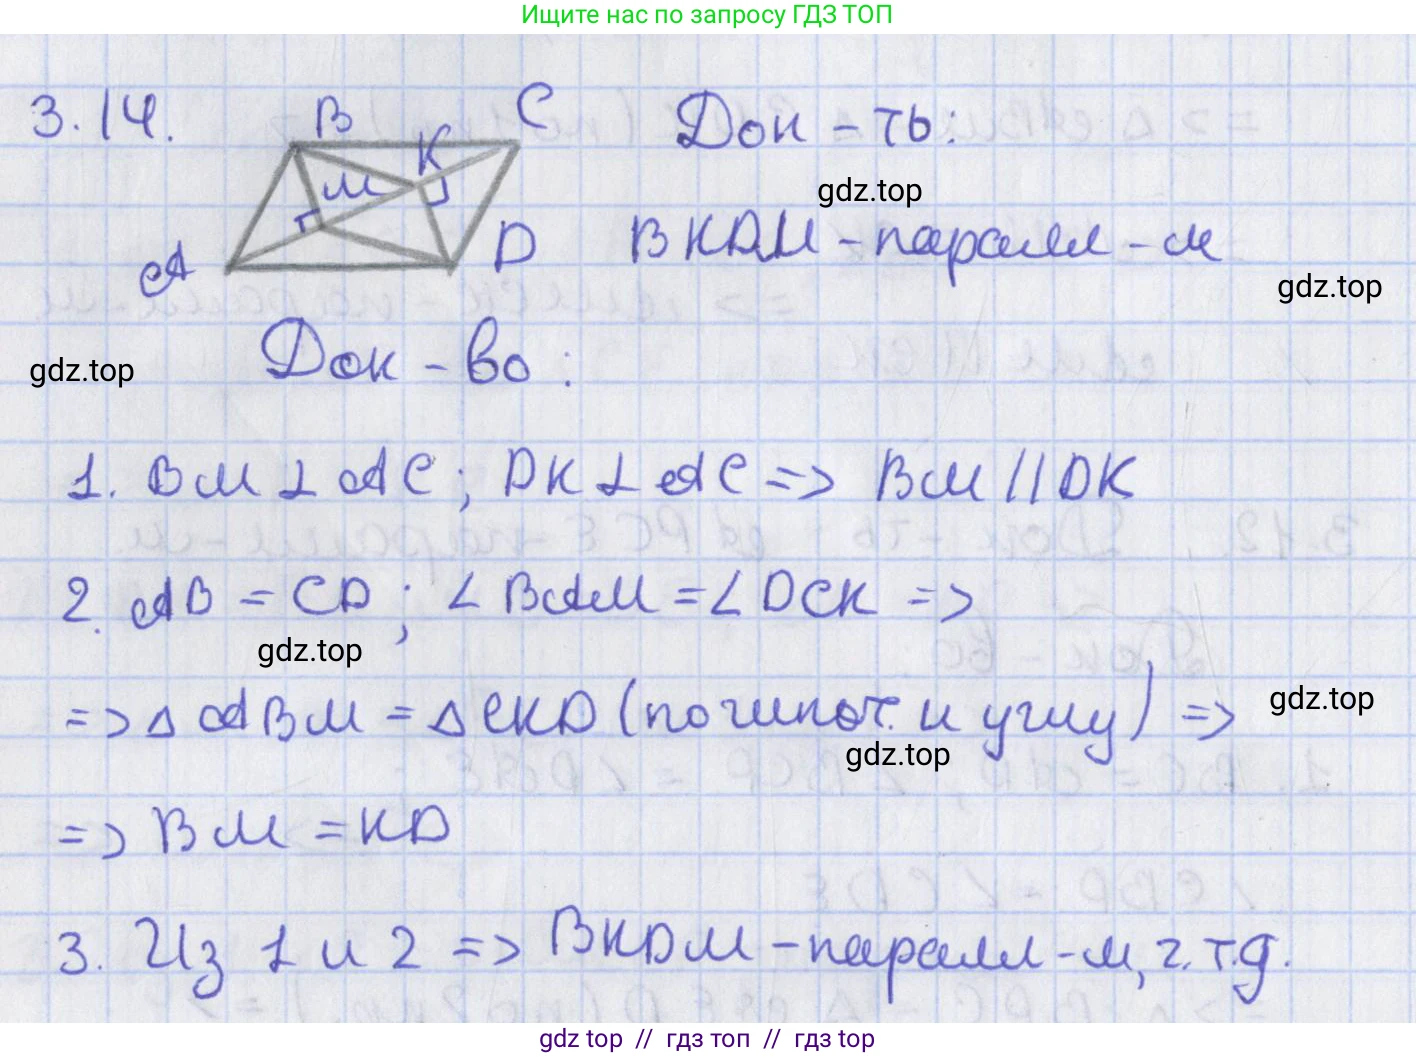 Ищите нас по запросу ГДЗ ТОП
3.14.
B
C
K
M
A
D
Док-ть:
gdz.top
BKDM - паралл-м
gdz.top
gdz.top
Док-во:
1. BM ⊥ AC; DK ⊥ AC => BM || DK
2. AB = CD; ∠BAM = ∠DCK =>
gdz.top
=> △ABM = △CKD (по гипот. и углу) =>
gdz.top
gdz.top
=> BM = KD
3. Из 1 и 2 => BKDM - паралл-м, ч.т.д.
gdz.top // гдз топ // гдз top